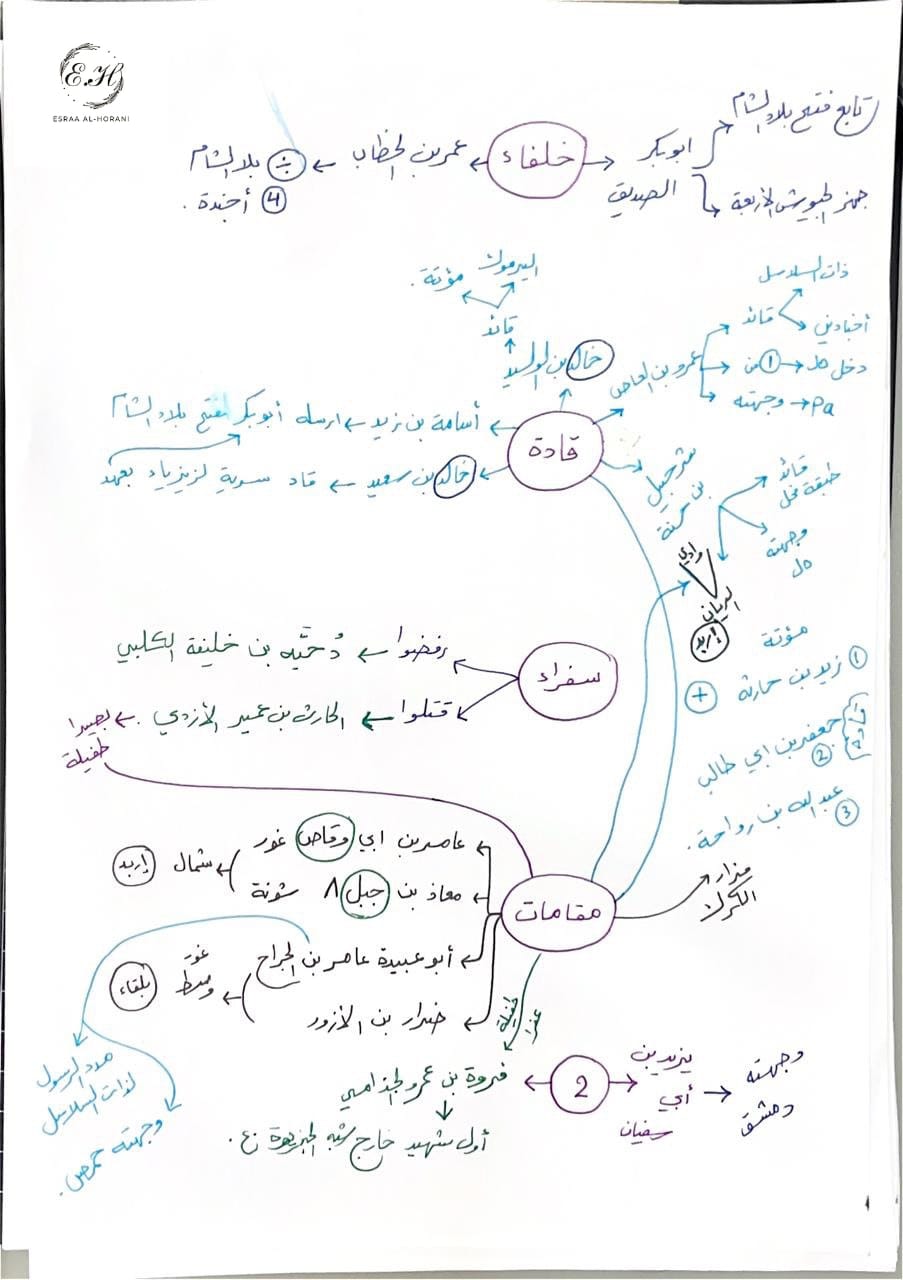 E.H
ESRAA AL-HORANI
خلفاء
ابوبكر
الصديق
تابع فتح بلاد الشام
جهز الجيوش الأربعة
عمر بن الخطاب
÷ بلاد الشام
4 أجندة.
قادة
خالد بن الوليد
قائد
اليرموك
مؤتة.
عمرو بن العاص
قائد
ذات السلاسل
أجنادين
1 من
دخل
وجهته
أسامة بن زيد
ارسله أبوبكر لفتح بلاد الشام
خالد بن سعيد
قاد سرية لزيزياء بعهد
شرحبيل
بن حسنة
قائد
طبقة فحل
وجهته
وادي
الريان
إربد
مؤتة
1 زيد بن حارثة
+
جعفر بن ابي طالب
2
عبدالله بن رواحة.
3
سفراء
رفضوا
دُحَيّه بن خليفة الكلبي
قتلوا
الحارث بن عمير الأزدي
بصيرا
طفيلة
مقامات
مزار
الكرك
عامر بن ابي وقاص غور
معاذ بن جبل ٨ شونة
شمال
إربد
أبو عبيدة عامر بن الجراح
ضرار بن الأزور
غور
وسط
بلقاء
مدد الرسول
لذات السلاسل
وجهته حمص.
طفيلة
عفرا
2
فروة بن عمرو الجذامي
أول شهيد خارج شبه الجزيرة ع.
يزيد بن
أبي
سفيان
وجهته
دمشق